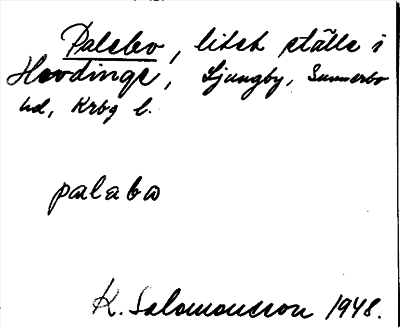 Palabo, litet ställe i
Hovdinge, Ljungby, Sunnerbo
hd, Krbg l.
palabo
K. Salomonsson 1948.